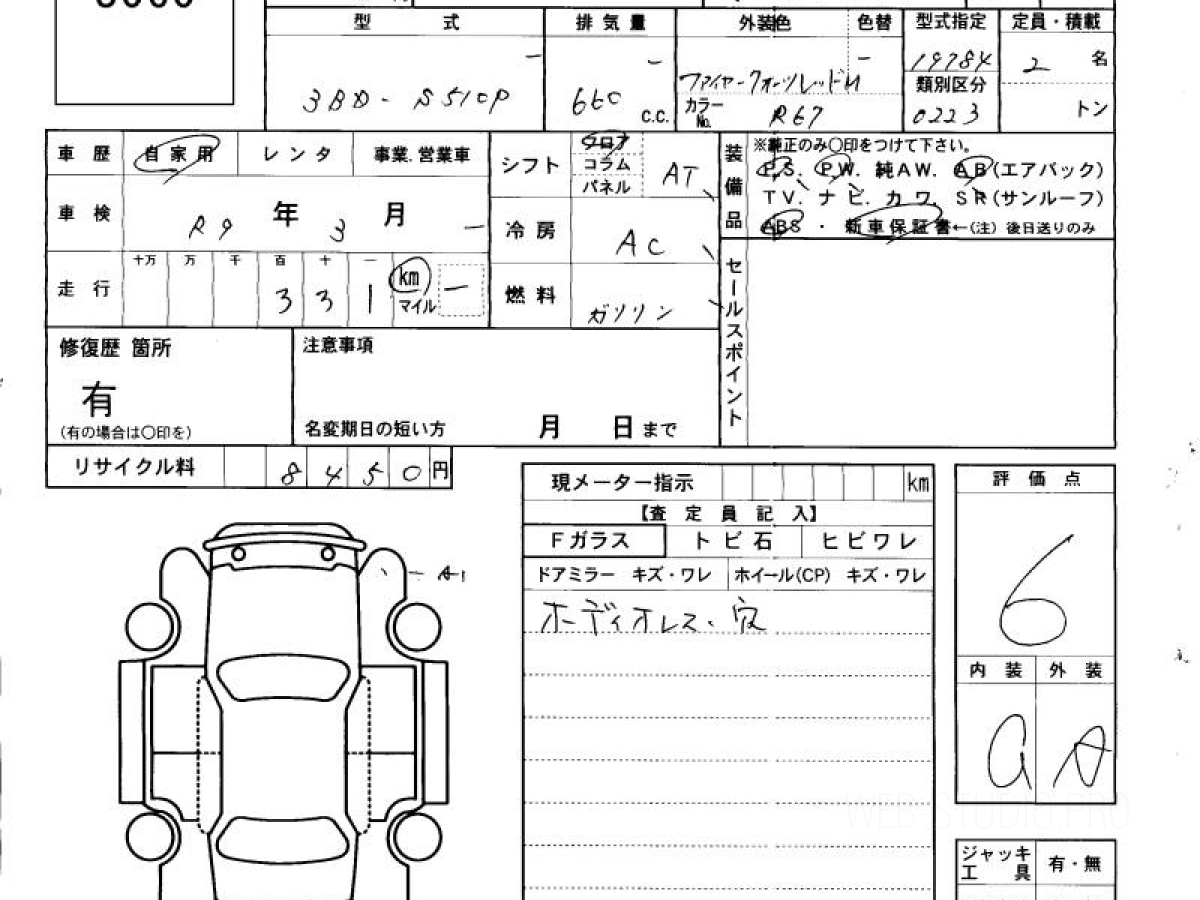 型式 排気量 外装色 色替 型式指定 定員・積載
3BD-S510P 660 c.c. ファイヤークォーツレッドM 19784 2 名
カラーNo. R67 類別区分 0223 トン
車歴 自家用 レンタ 事業.営業車
シフト フロア コラム パネル AT
装備品 ※純正のみ〇印をつけて下さい。
P.S. P.W. 純AW. AB(エアバック)
TV. ナビ. カワ. SR(サンルーフ)
ABS ・ 新車保証書←(注) 後日送りのみ
車検 R9 年 3 月
冷房 AC
走行 十万 万 千 百 十 一
3 3 1 km マイル
燃料 ガソリン
セールスポイント
修復歴 箇所
有
(有の場合は〇印を)
注意事項
名変期日の短い方 月 日まで
リサイクル料 8450円
現メーター指示 km
【査定員記入】
Fガラス トビ石 ヒビワレ
ドアミラー キズ・ワレ ホイール(CP) キズ・ワレ
A1
評価点
6
内装 外装
a A
ジャッキ 有・無
工具
WEB-STUDIO.PRO